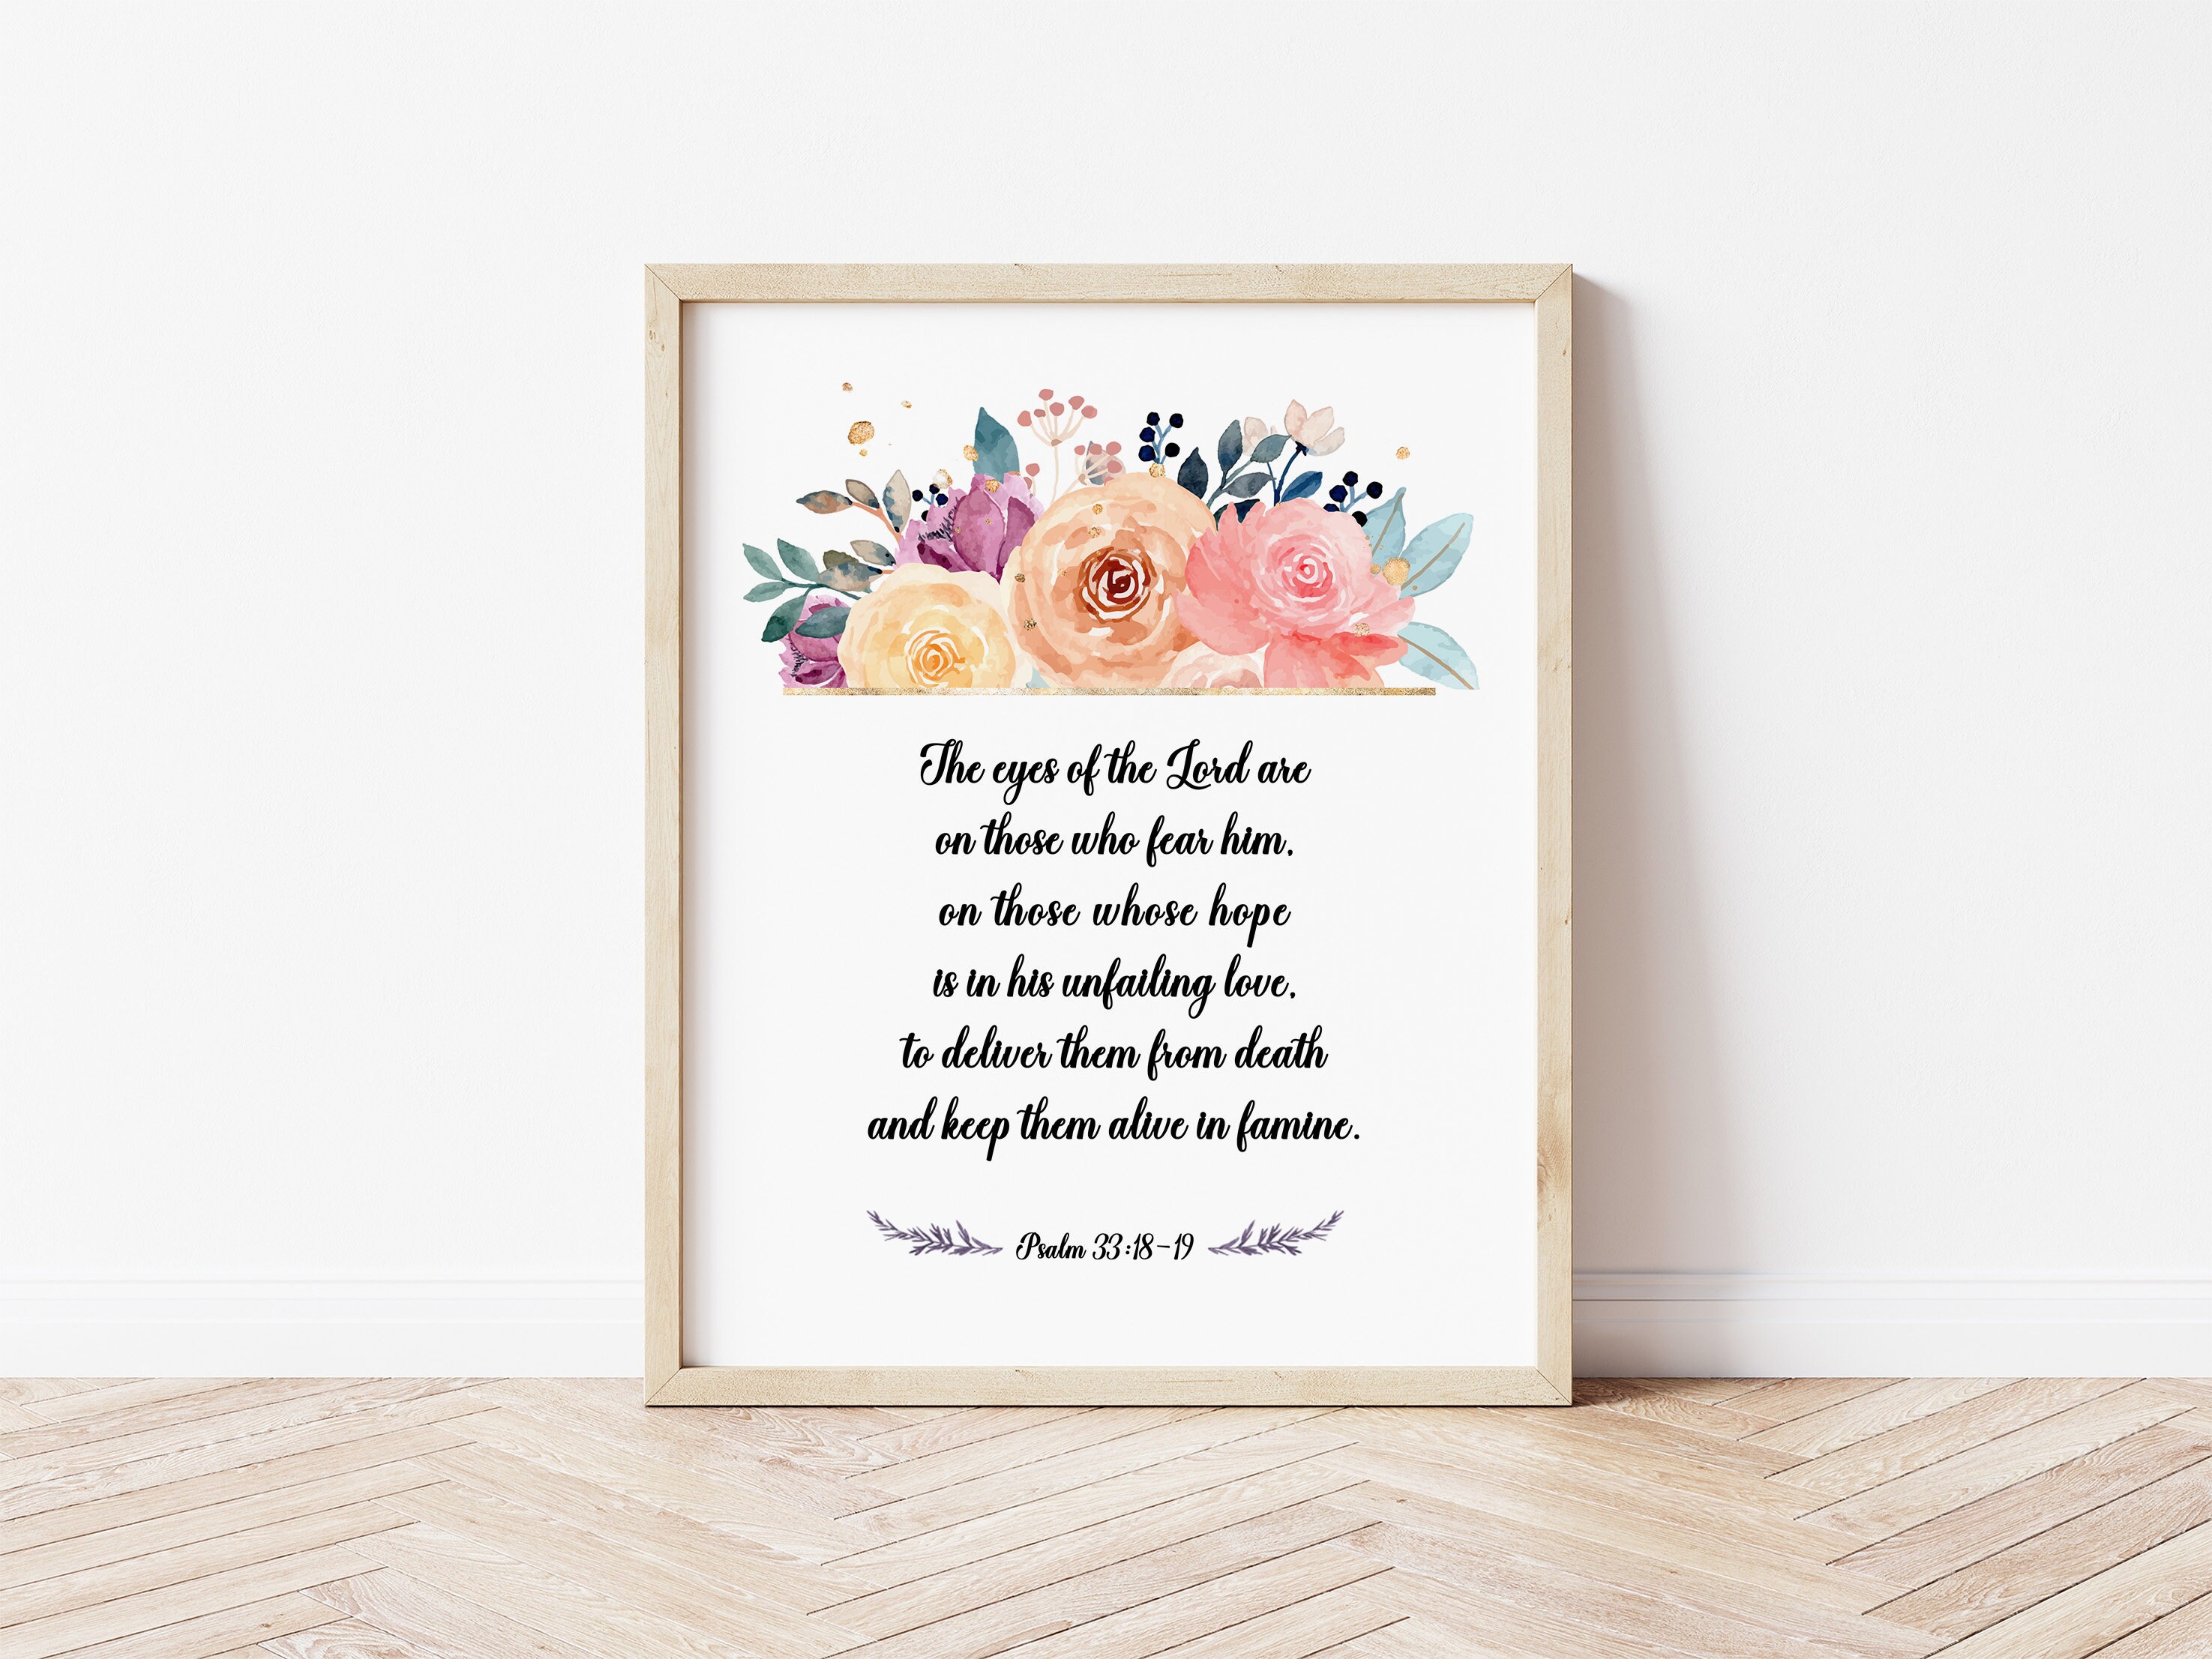 The eyes of the Lord are
on those who fear him,
on those whose hope
is in his unfailing love,
to deliver them from death
and keep them alive in famine.
Psalm 33:18-19